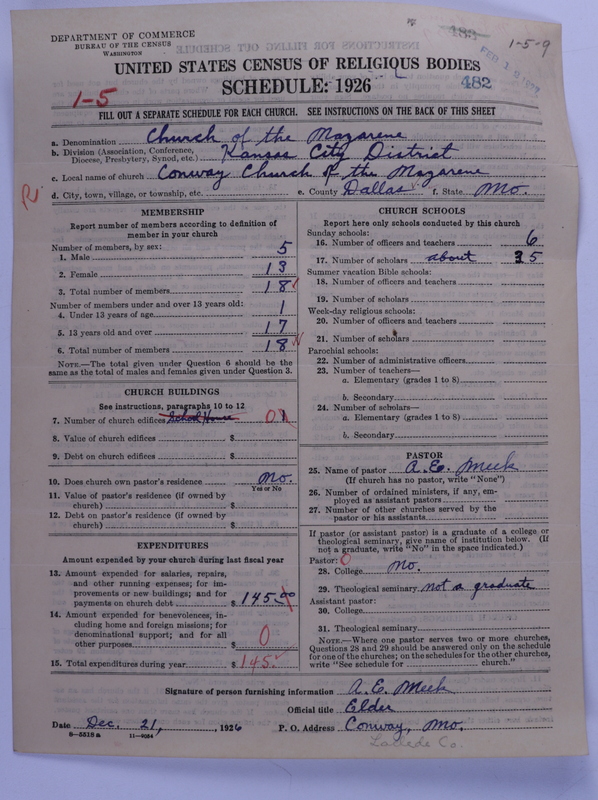 DEPARTMENT OF COMMERCE
BUREAU OF THE CENSUS
WASHINGTON
482
1-5-9
UNITED STATES CENSUS OF RELIGIOUS BODIES
SCHEDULE: 1926
482
1-5
FILL OUT A SEPARATE SCHEDULE FOR EACH CHURCH. SEE INSTRUCTIONS ON THE BACK OF THIS SHEET
a. Denomination Church of the Nazarene
b. Division (Association, Conference, Diocese, Presbytery, Synod, etc.) Kansas City District
c. Local name of church Conway Church of the Nazarene
d. City, town, village, or township, etc. e. County Dallas f. State Mo.
MEMBERSHIP
Report number of members according to definition of
member in your church
Number of members, by sex:
1. Male 5
2. Female 13
3. Total number of members 18
Number of members under and over 13 years old:
4. Under 13 years of age 1
5. 13 years old and over 17
6. Total number of members 18
NOTE.—The total given under Question 6 should be the
same as the total of males and females given under Question 3.
CHURCH BUILDINGS
See instructions, paragraphs 10 to 12
7. Number of church edifices School House 0 1
8. Value of church edifices $
9. Debt on church edifices $
10. Does church own pastor's residence No.
Yes or No
11. Value of pastor's residence (if owned by
church) $
12. Debt on pastor's residence (if owned by
church) $
EXPENDITURES
Amount expended by your church during last fiscal year
13. Amount expended for salaries, repairs,
and other running expenses; for im-
provements or new buildings; and for
payments on church debt $ 145.00
14. Amount expended for benevolences, in-
cluding home and foreign missions; for
denominational support; and for all
other purposes $ 0
15. Total expenditures during year $ 145.
CHURCH SCHOOLS
Report here only schools conducted by this church
Sunday schools:
16. Number of officers and teachers 6
17. Number of scholars about 35
Summer vacation Bible schools:
18. Number of officers and teachers
19. Number of scholars
Week-day religious schools:
20. Number of officers and teachers
21. Number of scholars
Parochial schools:
22. Number of administrative officers
23. Number of teachers—
a. Elementary (grades 1 to 8)
b. Secondary
24. Number of scholars—
a. Elementary (grades 1 to 8)
b. Secondary
PASTOR
25. Name of pastor A. E. Meek
(If church has no pastor, write "None")
26. Number of ordained ministers, if any, em-
ployed as assistant pastors
27. Number of other churches served by the
pastor or his assistants
If pastor (or assistant pastor) is a graduate of a college or
theological seminary, give name of institution below. (If
not a graduate, write "No" in the space indicated.)
Pastor: 0
28. College No.
29. Theological seminary not a graduate
Assistant pastor:
30. College
31. Theological seminary
NOTE.—Where one pastor serves two or more churches,
Questions 28 and 29 should be answered only on the schedule
for one of the churches; on the schedules for the other churches,
write "See schedule for church."
Signature of person furnishing information A. E. Meek
Official title Elder
Date Dec. 21, , 1926 P. O. Address Conway, Mo.
8—5518 a 11—9064
Laclede Co.